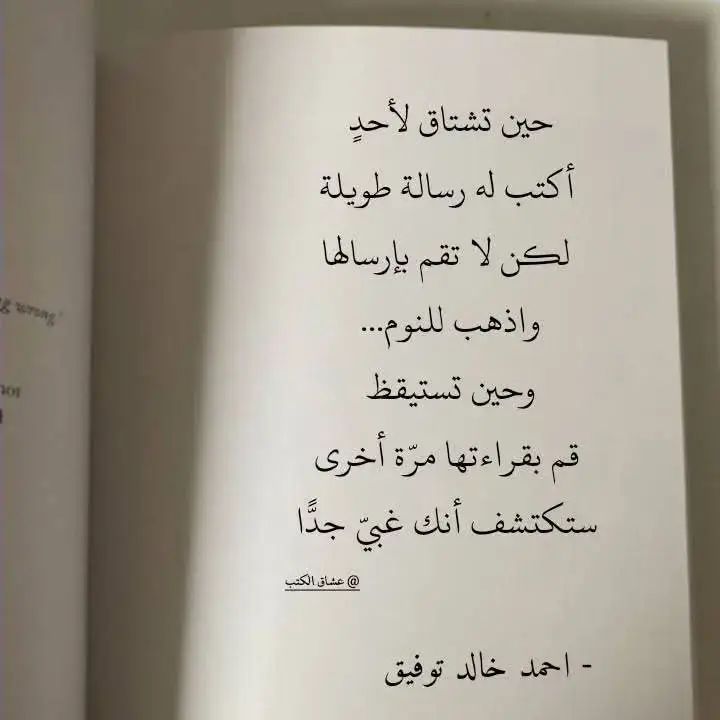 حين تشتاق لأحدٍ
أكتب له رسالة طويلة
لكن لا تقم بإرسالها
واذهب للنوم...
وحين تستيقظ
قم بقراءتها مرّة أخرى
ستكتشف أنك غبيّ جدًّا
@ عشاق الكتب
- احمد خالد توفيق